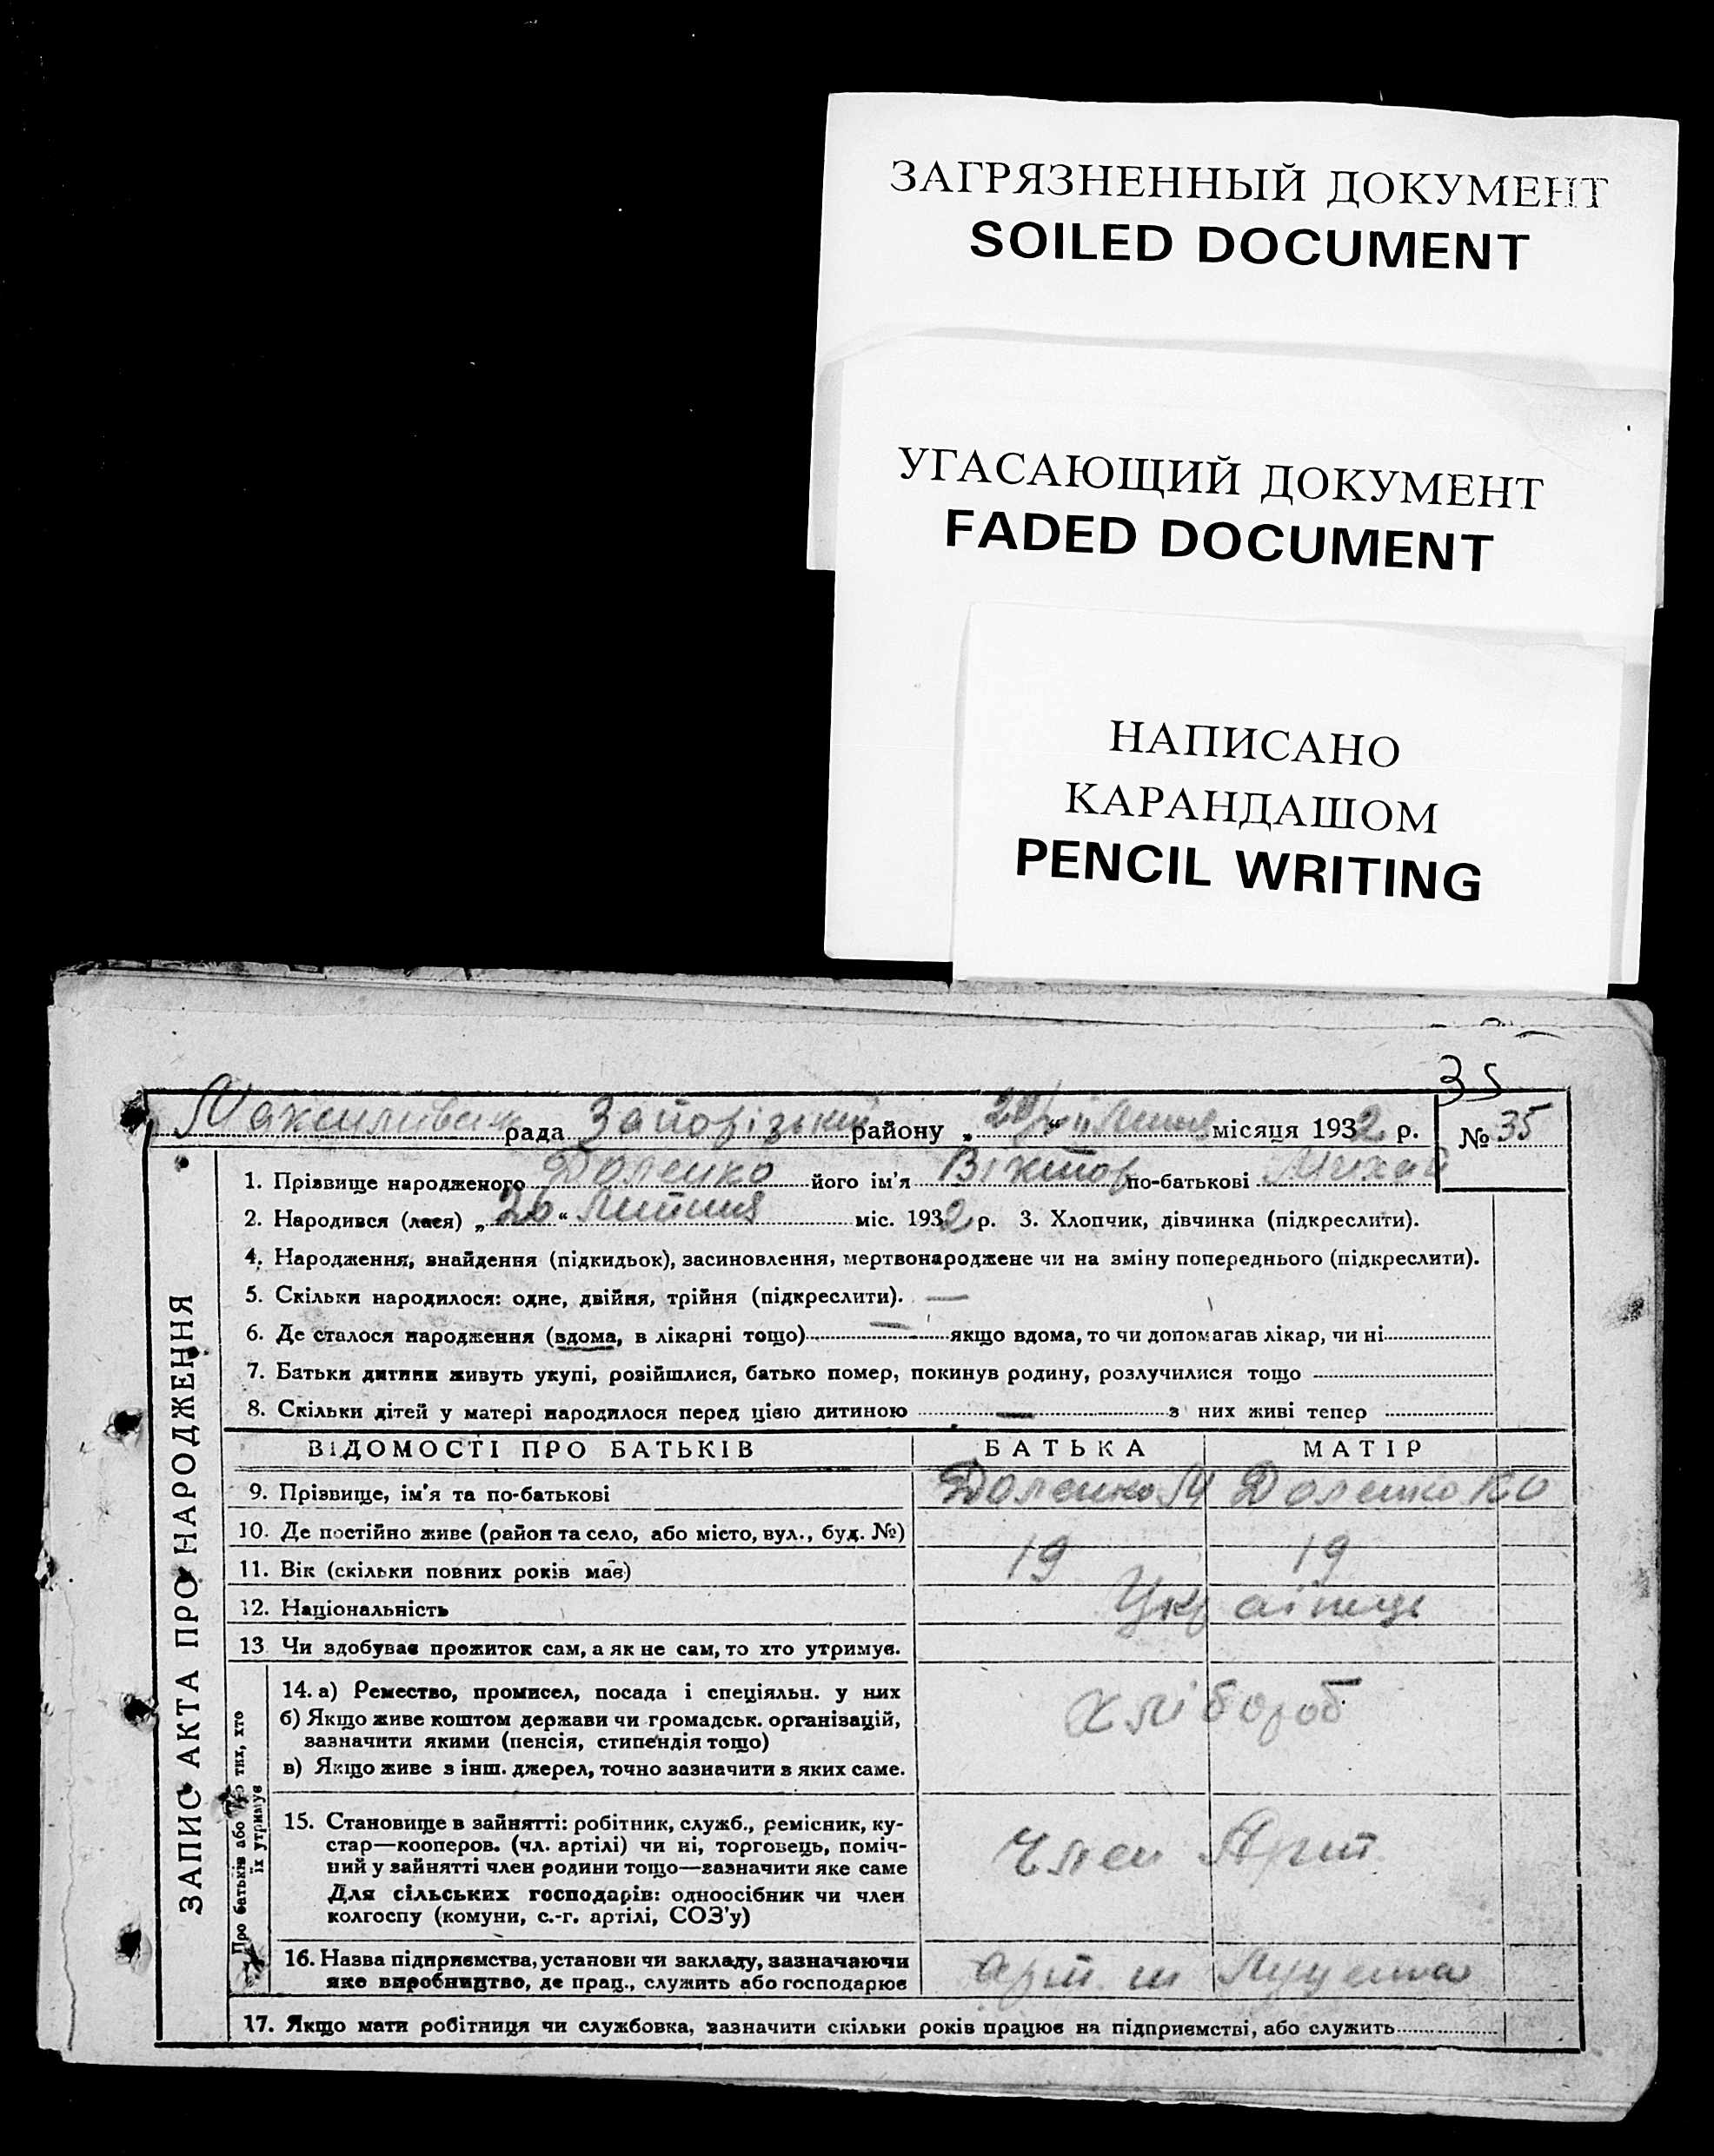 ЗАГРЯЗНЕННЫЙ ДОКУМЕНТ
SOILED DOCUMENT
УГАСАЮЩИЙ ДОКУМЕНТ
FADED DOCUMENT
НАПИСАНО
КАРАНДАШОМ
PENCIL WRITING
35
рада Запорізький району „ місяця 1932 р. № 35
ЗАПИС АКТА ПРО НАРОДЖЕННЯ
1. Прізвище народженого Доленко його ім'я Віктор по-батькові Михай
2. Народився (лася) „20“ Липня міс. 1932 р. 3. Хлопчик, дівчинка (підкреслити).
4. Народження, знайдення (підкидьок), засиновлення, мертвонароджене чи на зміну попереднього (підкреслити).
5. Скільки народилося: одне, двійня, трійня (підкреслити). —
6. Де сталося народження (вдома, в лікарні тощо) — якщо вдома, то чи допомагав лікар, чи ні
7. Батьки дитини живуть укупі, розійшлися, батько помер, покинув родину, розлучилися тощо
8. Скільки дітей у матері народилося перед цією дитиною — з них живі тепер
ВІДОМОСТІ ПРО БАТЬКІВ БАТЬКА МАТІР
9. Прізвище, ім'я та по-батькові Доленко М Доленко
10. Де постійно живе (район та село, або місто, вул., буд. №)
11. Вік (скільки повних років має) 19 19
12. Національність Українці
13. Чи здобуває прожиток сам, а як не сам, то хто утримує.
Про батьків або про тих, хто
їх утримує
14. а) Ремество, промисел, посада і спеціяльн. у них
б) Якщо живе коштом держави чи громадськ. організацій,
зазначити якими (пенсія, стипендія тощо)
в) Якщо живе з інш. джерел, точно зазначити з яких саме.
хлібороб
15. Становище в зайнятті: робітник, служб., ремісник, ку-
стар—кооперов. (чл. артілі) чи ні, торговець, поміч-
ний у зайнятті член родини тощо—зазначити яке саме
Для сільських господарів: одноосібник чи член
колгоспу (комуни, с.-г. артілі, СОЗ'у)
Член Арт
16. Назва підприємства, установи чи закладу, зазначаючи
яке виробництво, де прац., служить або господарює
арт ш Луценка
17. Якщо мати робітниця чи службовка, зазначити скільки років працює на підприємстві, або служить